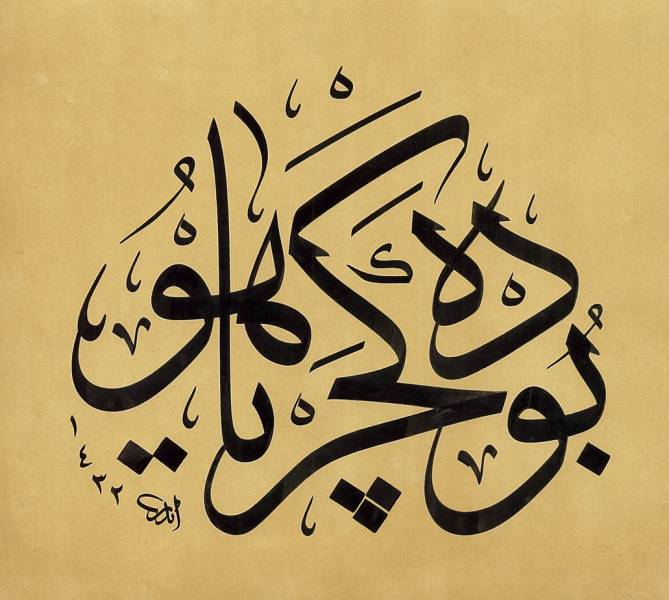 بو ده كچر يا هو
١٤٣٢